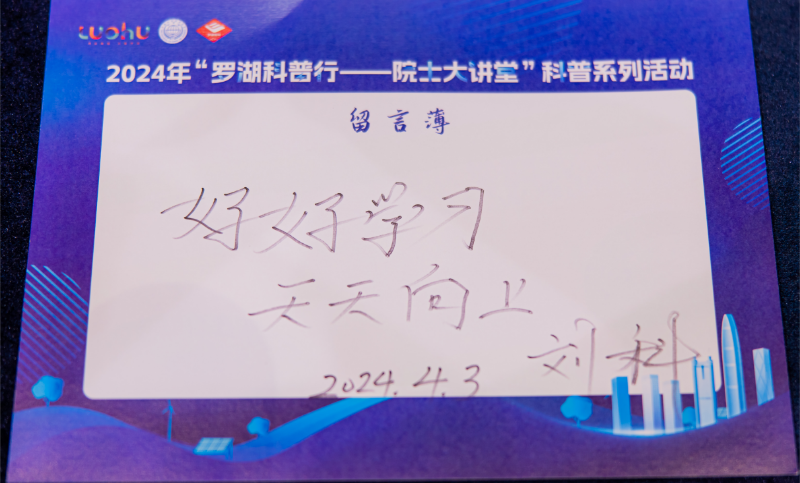 luohu
2024年“罗湖科普行——院士大讲堂”科普系列活动
留言薄
好好学习
天天向上
刘科
2024.4.3